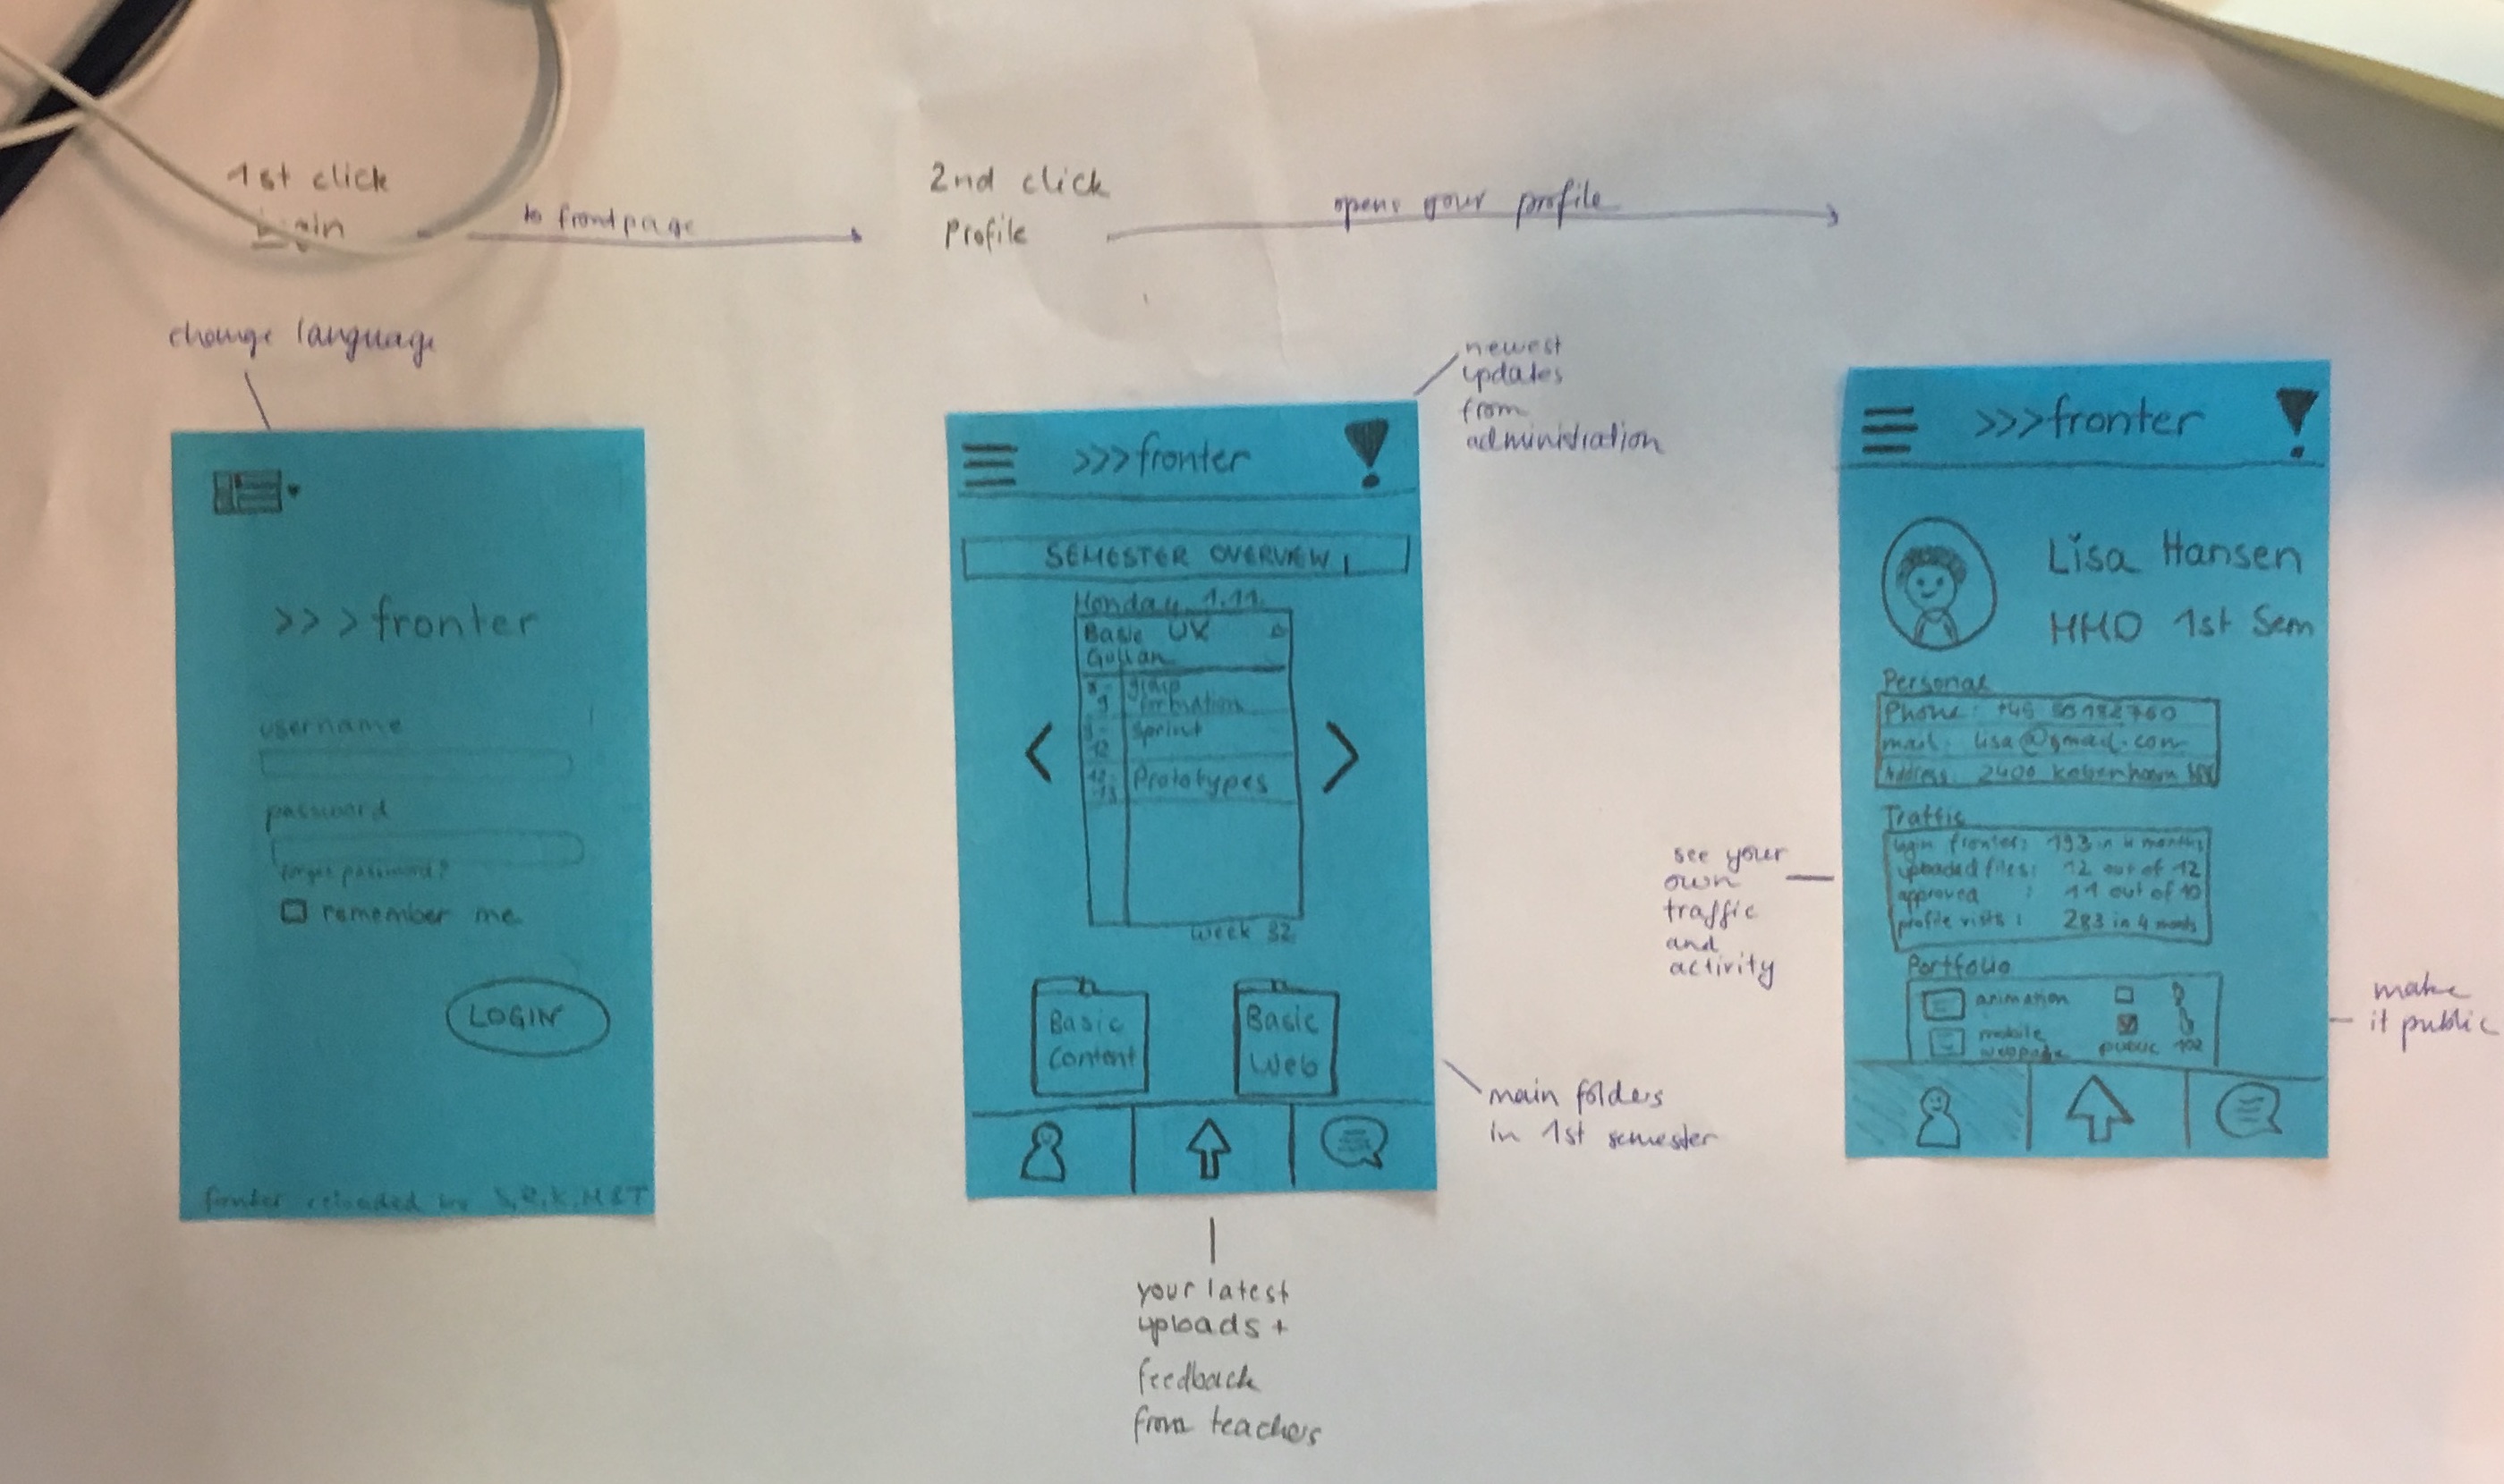 1st click
to frontpage
2nd click
Profile
opens your profile
change language
>>>fronter
username
password
forgot password?
remember me
LOGIN
fronter reloaded by
newest
updates
from
administration
>>>fronter
SEMESTER OVERVIEW
Monday 1.11.
Basic UX
8-9 group formation
9-12 Sprint
12-13 Prototypes
week 32
Basic Content
Basic Web
main folders
in 1st semester
your latest
uploads +
feedback
from teachers
>>>fronter
Lisa Hansen
MMD 1st Sem
Personal
Phone:
mail: lisa@gmail.com
Address: 2400 København
Traffic
login fronter: 193 in 4 months
uploaded files: 12 out of 12
approved : 11 out of 10
profile visits : 283 in 4 months
Portfolio
animation
mobile
webpage public 102
see your
own
traffic
and
activity
make
it public